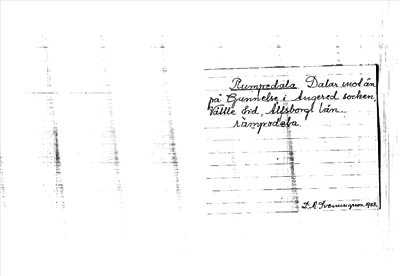 Rumpedala Dalar mot ån
på Gunnelse i Angered socken,
Vättle hd, Älfsborgs län.
ràmpɘdɑ̀la
1922.